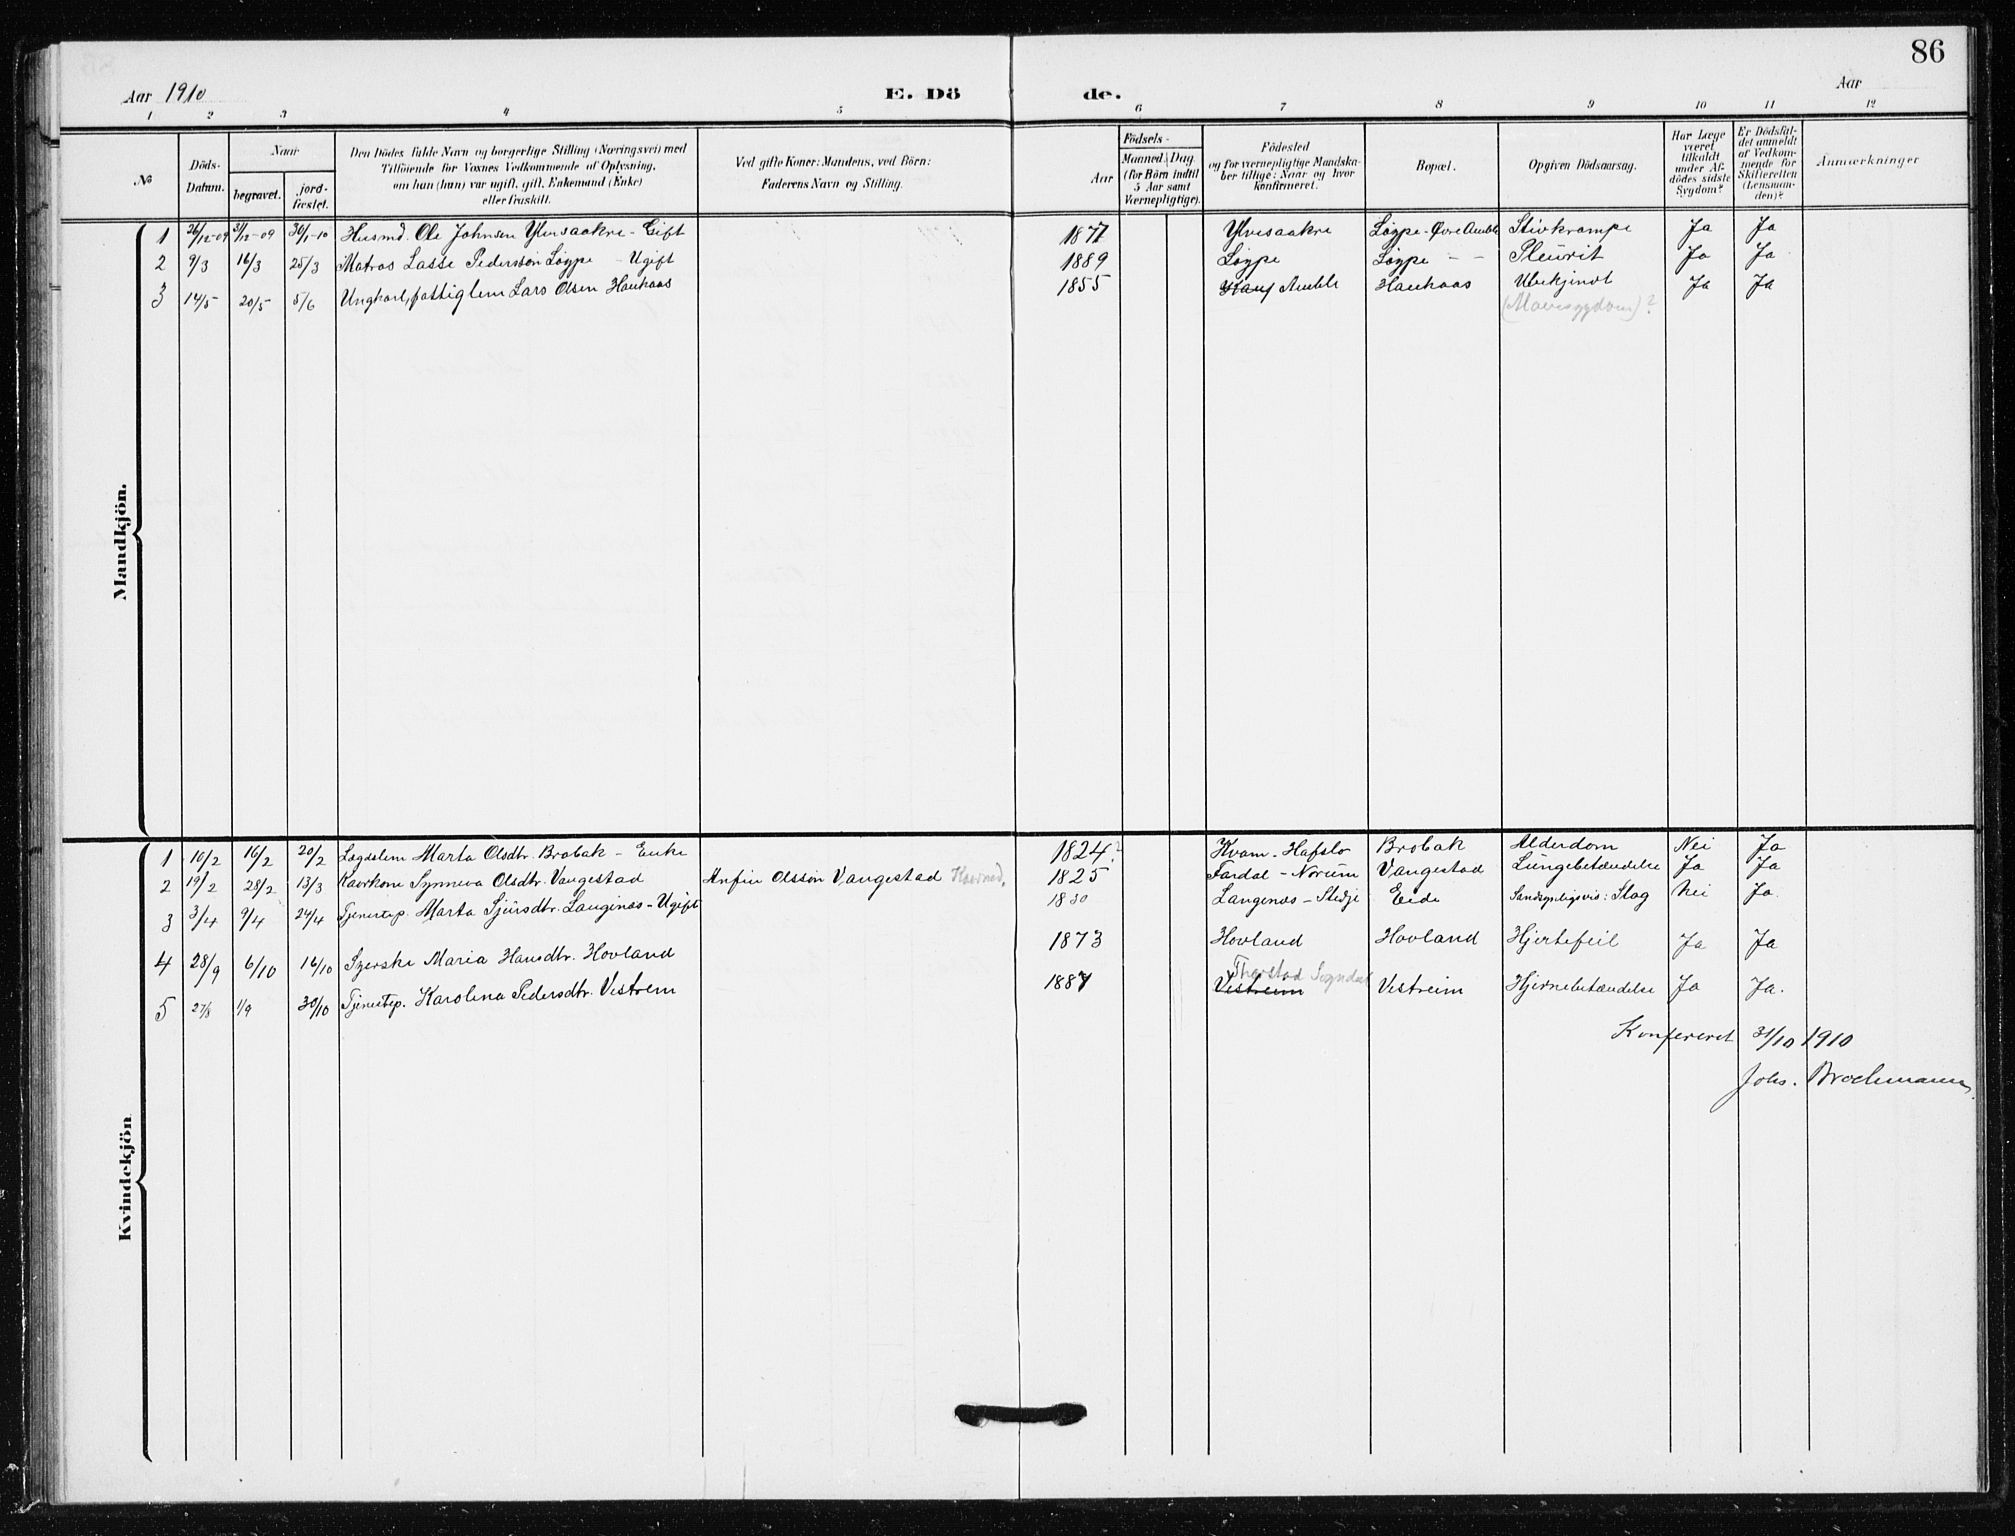 86
Aar 1910
E. Dö
de.
Aar
1 2 3 4 5 6 7 8 9 10 11 12
No
Döds-Datum.
Naar
begravet.
jord-fæstet.
Den Dödes fulde Navn og borgerlige Stilling (Næringsvei) med
Tilföiende for Voxnes Vedkommende af Oplysning,
om han (hun) var ugift, gift, Enkemand (Enke)
eller fraskilt.
Ved gifte Koner: Mandens, ved Börn:
Faderens Navn og Stilling.
Födsels-
Aar
Maaned. Dag.
(for Börn indtil
5 Aar samt
Værnepligtige).
Födested
og for værnepligtige Mandska-
ber tillige: Naar og hvor
konfirmeret.
Bopæl.
Opgiven Dödsaarsag.
Har Læge
været
tilkaldt
under Af-
dödes sidste
Sygdom?
Er Dödsfal-
det anmeldt
af Vedkom-
mende for
Skifteretten
(Lensman-
den)?
Anmærkninger
Mandkjön.
1 26/12-09 31/12-09 30/1-10 Husmd. Ole Johnsen Ylvisaakre - Gift 1877 Ylvisaakre Løype - Øvre Amble Stivkrampe Ja Ja
2 9/3 16/3 25/3 Matros Lasse Pedersson Løype - Ugift 1889 Løype Løype - - Pleurit Ja Ja
3 14/5 20/5 5/6 Ungkarl, fattiglem Lars Olsen Hauhaas 1855 Amble Hauhaas Ubekjendt Ja Ja
(Mavesygdom)?
Kvindekjön
1 10/2 16/2 20/2 Lægdslem Marta Olsdtr. Brobak - Enke 1824? Kvam - Hafslo Brobak Alderdom Nei Ja
2 19/2 28/2 13/3 Kaarkone Synneva Olsdtr. Vangestad Anfin Olsson Vangestad Kaarmd. 1825 Fardal - Norum Vangestad Lungebetændelse Ja Ja
3 3/4 9/4 24/4 Tjenestep. Marta Sjursdtr. Langinæs - Ugift 1830 Langenæs - Stedje Eide Sandsynligvis: Slag Nei Ja
4 28/9 6/10 16/10 Syerske Maria Hansdtr. Hovland 1873 Hovland Hovland Hjertefeil Ja Ja
Thorstad Sogndal
5 27/8 1/9 30/10 Tjenestep. Karolina Pedersdtr. Vestrem 1887 Vestreim Vestreim Hjernebetændelse Ja Ja.
Konfereret 31/10 1910
Johs. Brochmann